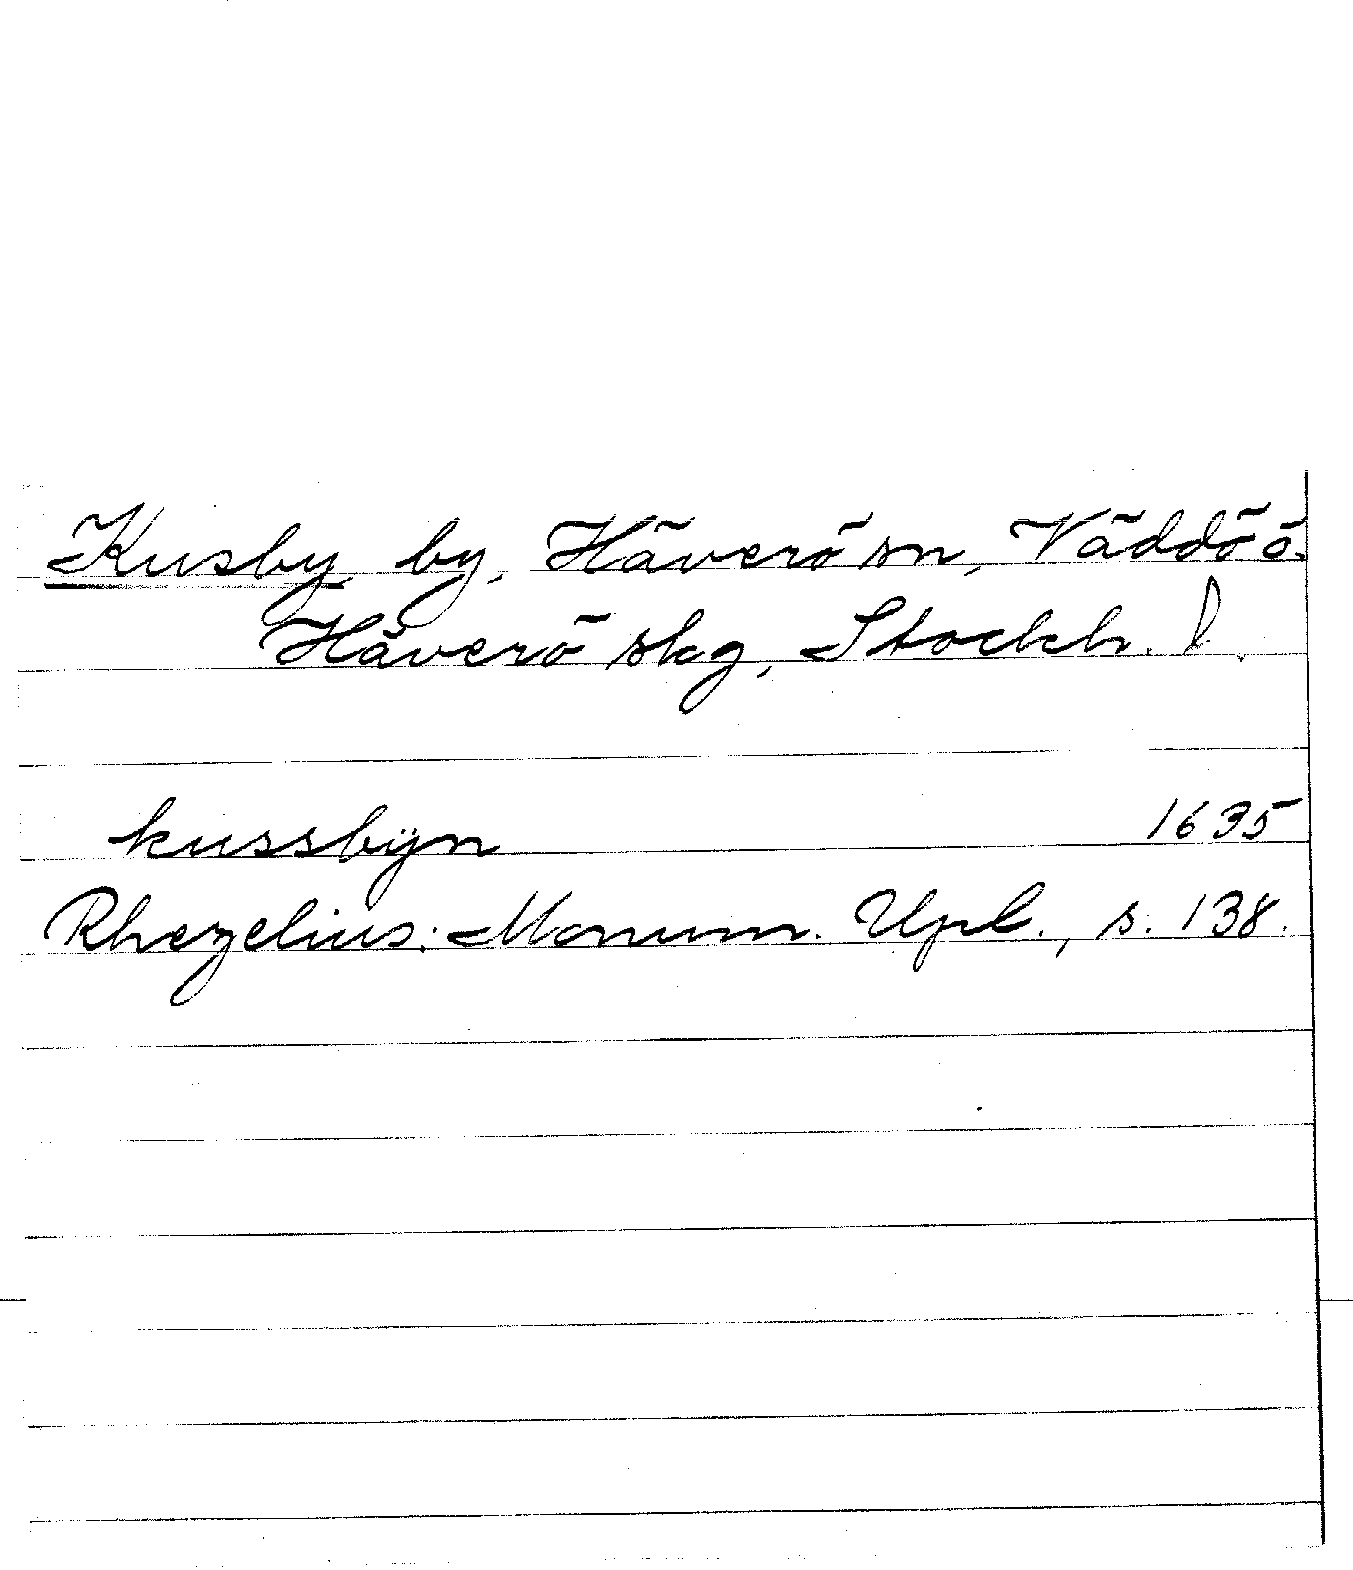 Kusby by, Häverö sn, Väddö ö.
Häverö skg, Stockh. l.
kussbÿn 1635
Rhezelius: Monum. Upl., s. 138.